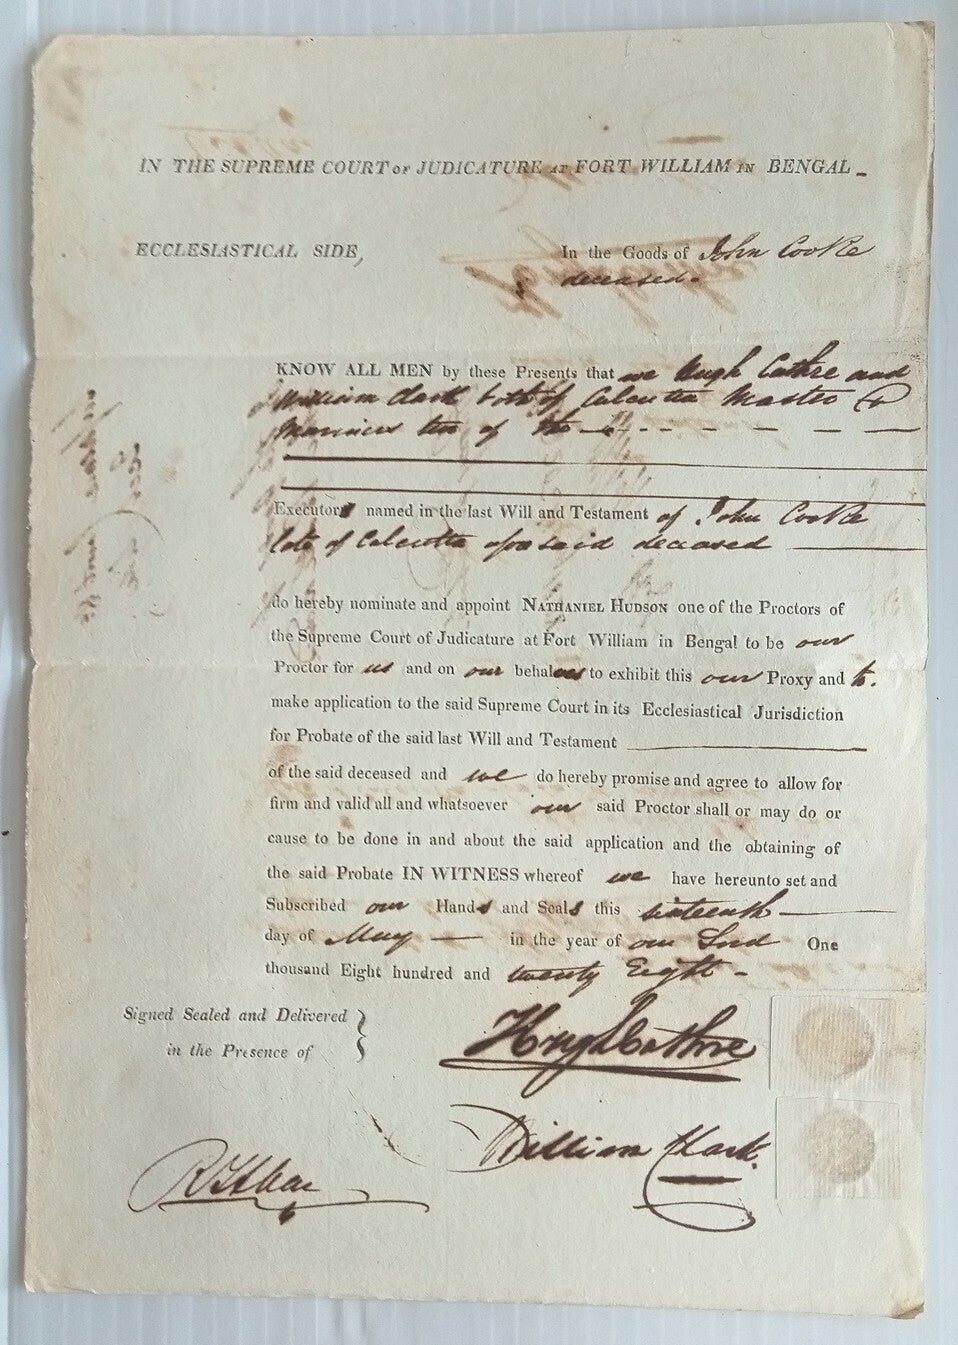 IN THE SUPREME COURT OF JUDICATURE AT FORT WILLIAM IN BENGAL
ECCLESIASTICAL SIDE,
In the Goods of John Cooke
deceased.
KNOW ALL MEN by these Presents that we Hugh Cathre and
William Clark both of Calcutta Master &
Mariners two of the
Executors named in the last Will and Testament of John Cooke
late of Calcutta aforesaid deceased
do hereby nominate and appoint NATHANIEL HUDSON one of the Proctors of
the Supreme Court of Judicature at Fort William in Bengal to be our
Proctor for us and on our behalves to exhibit this our Proxy and to
make application to the said Supreme Court in its Ecclesiastical Jurisdiction
for Probate of the said last Will and Testament
of the said deceased and we do hereby promise and agree to allow for
firm and valid all and whatsoever our said Proctor shall or may do or
cause to be done in and about the said application and the obtaining of
the said Probate IN WITNESS whereof we have hereunto set and
Subscribed our Hands and Seals this sixteenth
day of May in the year of our Lord One
thousand Eight hundred and twenty Eight
Signed Sealed and Delivered
in the Presence of
Hugh Cathre
William Clark.